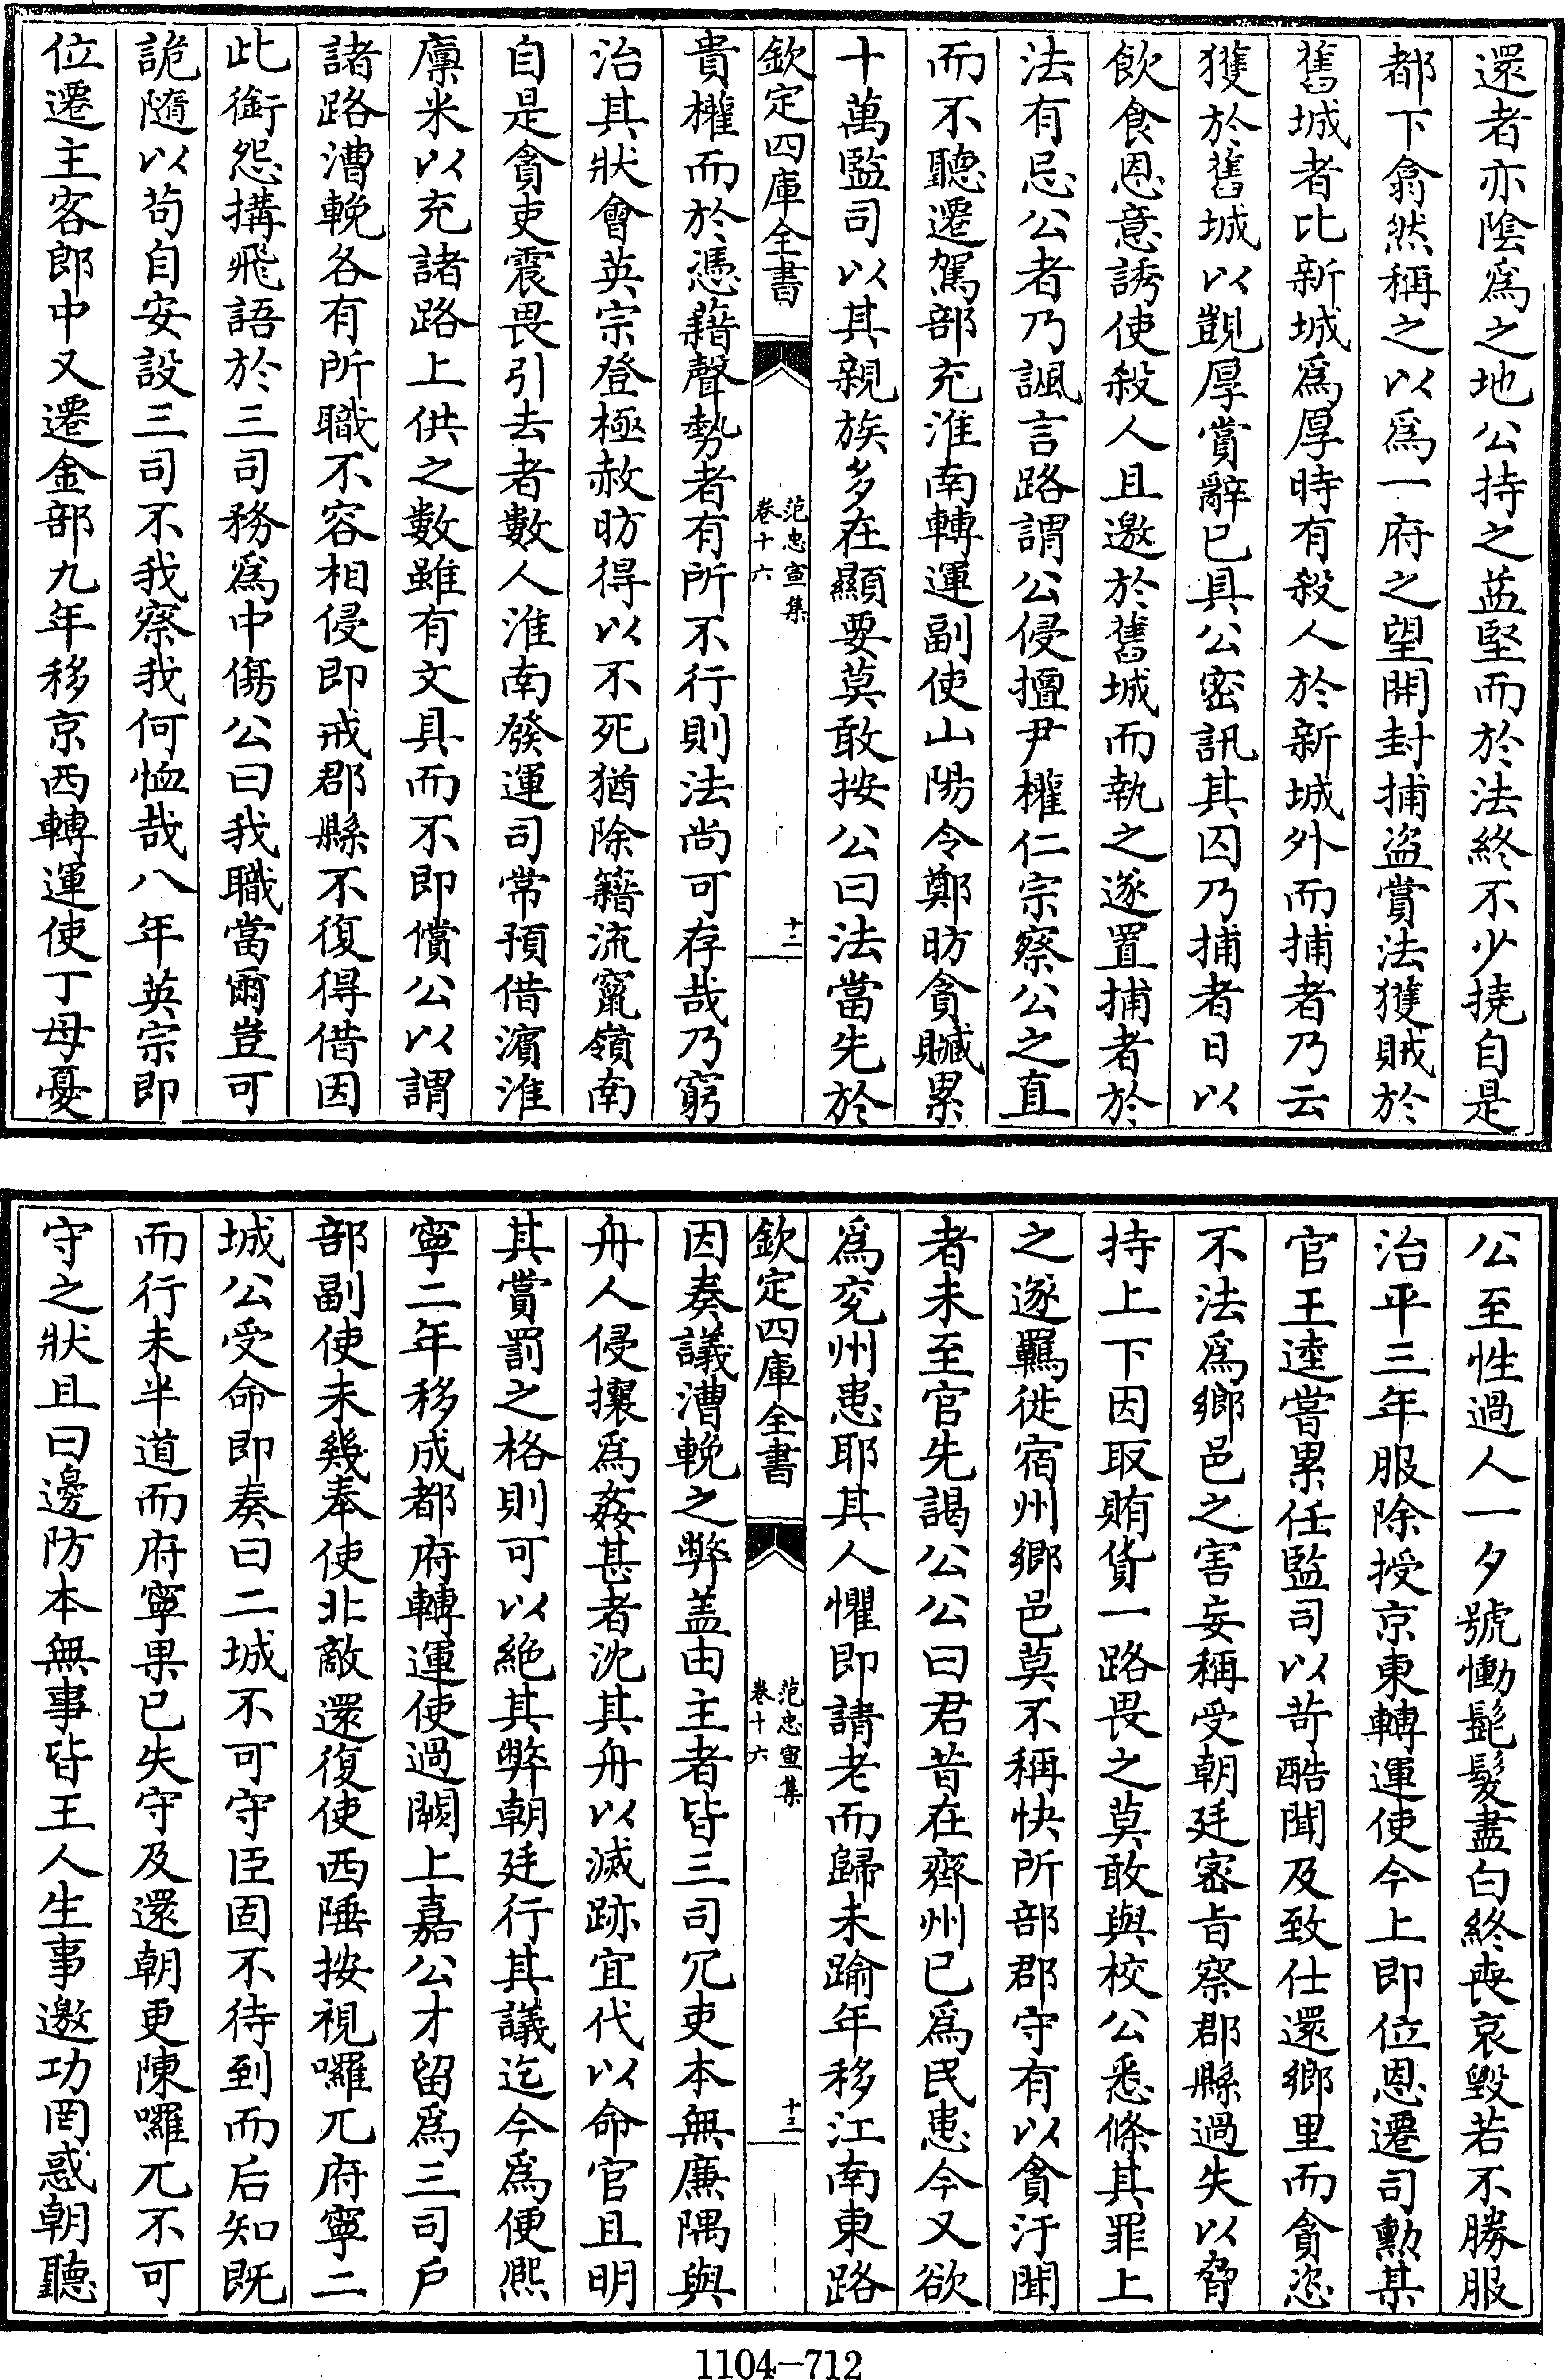 還者亦陰爲之地公持之益堅而於法終不少撓自是
都下翕然稱之以爲一府之望開封捕盜賞法獲賊於
舊城者比新城爲厚時有殺人於新城外而捕者乃云
獲於舊城以覬厚賞辭已具公密訊其囚乃捕者日以
飲食恩意誘使殺人且邀於舊城而執之遂置捕者於
法有忌公者乃諷言路謂公侵擅尹權仁宗察公之直
而不聽遷駕部充淮南轉運副使山陽令鄭昉貪贓累
十萬監司以其親族多在顯要莫敢按公曰法當先於
欽定四庫全書
范忠宣集
卷十六
十二
貴權而於憑藉聲勢者有所不行則法尚可存哉乃窮
治其狀會英宗登極赦昉得以不死猶除籍流竄嶺南
自是貪吏震畏引去者數人淮南發運司常預借濱淮
廪米以充諸路上供之數雖有文具而不即償公以謂
諸路漕輓各有所職不容相侵即戒郡縣不復得借因
此銜怨搆飛語於三司務爲中傷公曰我職當爾豈可
詭隨以苟自安設三司不我察我何恤哉八年英宗即
位遷主客郎中又遷金部九年移京西轉運使丁母憂
公至性過人一夕號慟髭髮盡白終喪哀毀若不勝服
治平三年服除授京東轉運使今上即位恩遷司勲某
官王逵嘗累任監司以苛酷聞及致仕還鄉里而貪恣
不法爲鄉邑之害妄稱受朝廷密旨察郡縣過失以脅
持上下因取賄貨一路畏之莫敢與校公悉條其罪上
之遂羈徙宿州鄉邑莫不稱快所部郡守有以貪汙聞
者未至官先謁公公曰君昔在齊州已爲民患今又欲
爲兖州患耶其人懼即請老而歸未踰年移江南東路
欽定四庫全書
范忠宣集
卷十六
十三
因奏議漕輓之弊盖由主者皆三司冗吏本無廉隅與
舟人侵攘爲姦甚者沈其舟以滅跡宜代以命官且明
其賞罰之格則可以絶其弊朝廷行其議迄今爲便熙
寧二年移成都府轉運使過闕上嘉公才留爲三司户
部副使未幾奉使北敵還復使西陲按視囉兀府寧二
城公受命即奏曰二城不可守臣固不待到而后知既
而行未半道而府寧果已失守及還朝更陳囉兀不可
守之狀且曰邊防本無事皆王人生事邀功罔惑朝聽
1104-712